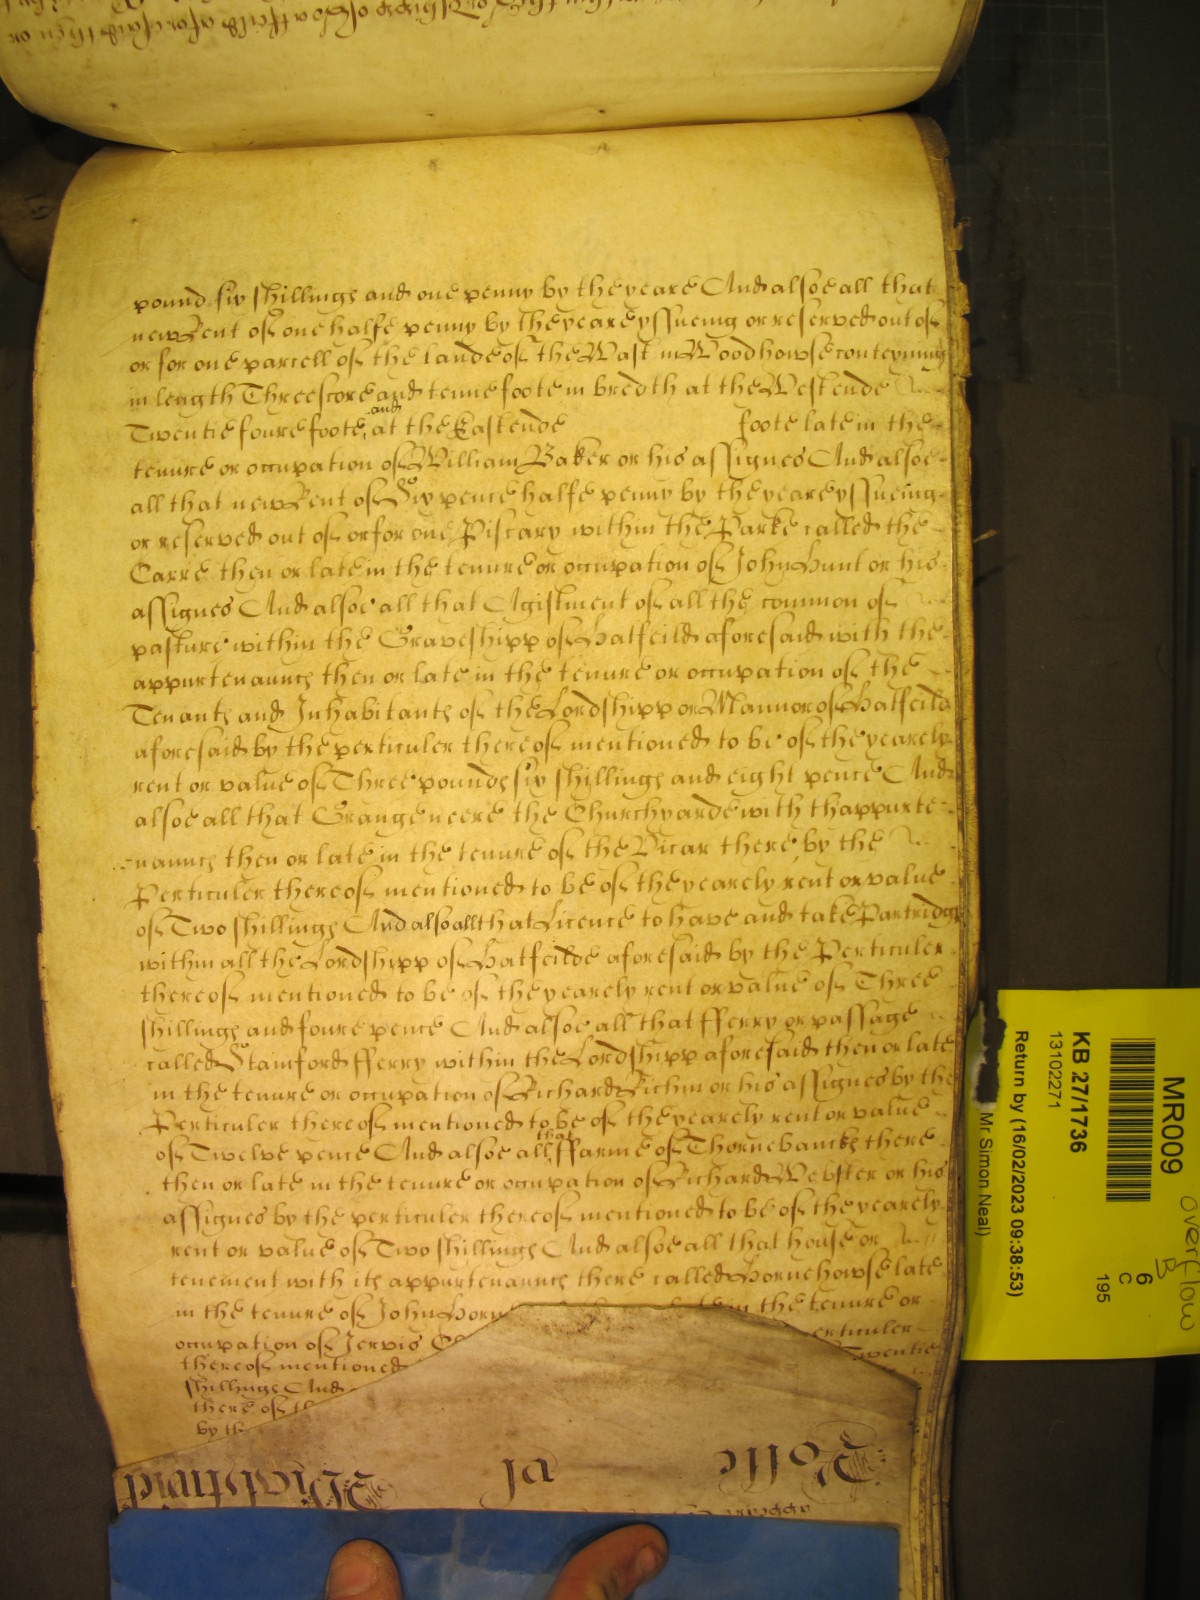 pound six shillings and one penny by the yeare And alsoe all that
new Rent of one halfe penny by the yeare yssueing or reserved out of
or for one parcell of the lande of the Wast in Woodhowse conteyning
in length Threescore and tenne foote in bredth at the West ende
Twentie foure foote and at the East ende foote late in the
tenure or occupation of William Baker or his assignes And alsoe
all that new Rent of Six pence halfe penny by the yeare yssueing
or reserved out of or for one Piscary within the Parke called the
Carre then or late in the tenure or occupation of John Hunt or his
assignes And alsoe all that Agistment of all the common of
pasture within the Graveshipp of Hatfeild aforesaid with the
appurtenaunces then or late in the tenure or occupation of the
Tenants and Inhabitants of the Lordshipp or Mannor of Hatfeild
aforesaid by the perticuler thereof mentioned to be of the yearely
rent or value of Three pounds six shillings and eight pence And
alsoe all that Grange neere the Churchyarde with thappurte
naunces then or late in the tenure of the Vicar there by the
Perticuler thereof mentioned to be of the yearely rent or value
of Two shillings And alsoe all that Licence to have and take Partridges
within all the Lordshipp of Hatfeilde aforesaid by the Perticuler
thereof mentioned to be of the yearely rent or value of Three
shillings and foure pence And alsoe all that fferry or passage
called Stainford fferry within the Lordshipp aforesaid then or late
in the tenure or occupation of Richard Richin or his assignes by the
Perticuler thereof mentioned to be of the yearely rent or value
of Twelve pence And alsoe all that ffarme of Thornebancks there
then or late in the tenure or occupation of Richard Webster or his
assignes by the perticuler thereof mentioned to be of the yearely
rent or value of Two shillings And alsoe all that house or
tenement with its appurtenaunces there called Hornehowse late
in the tenure of John Horne in the tenure or
occupation of Jervis perticuler
thereof mentioned Twentie
shillings And
there of th
by th
Rolle
MR009
KB 27/1736
13102271
Return by (16/02/2023 09:38:53)
Mr Simon Neal)
6
C
195
overflow
B